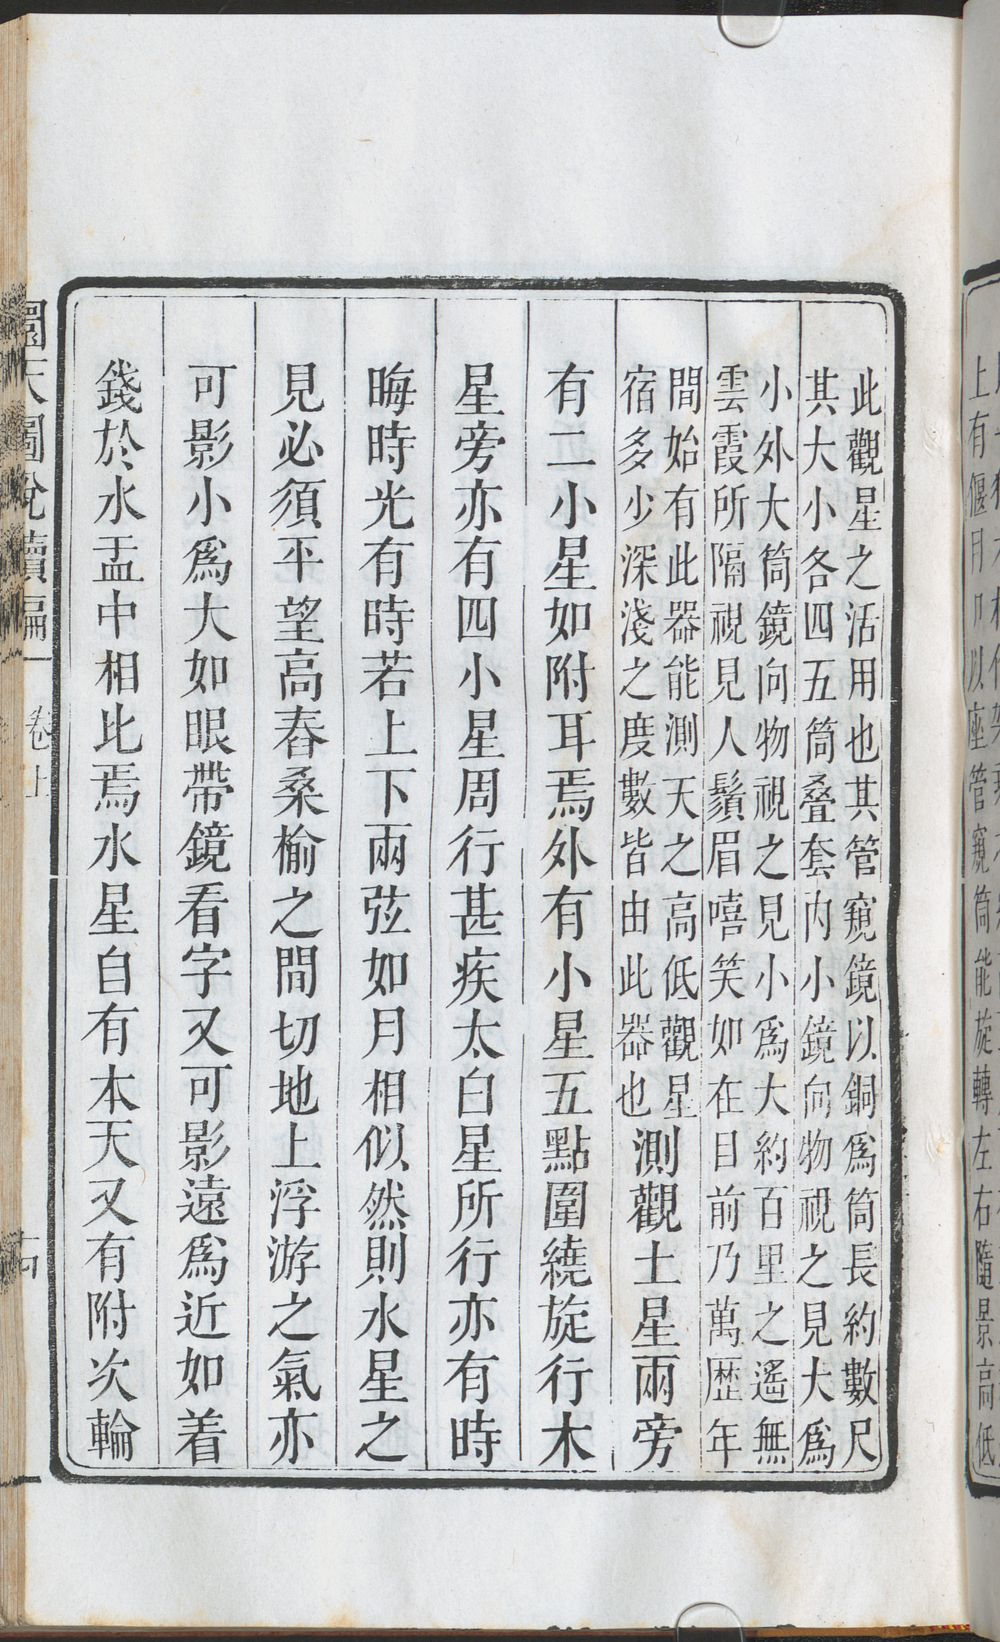 此觀星之活用也其管窺鏡以銅爲筒長約數尺
其大小各四五筒叠套内小鏡向物視之見大爲
小外大筒鏡向物視之見小爲大約百里之遙無
雲霞所隔視見人鬚眉嘻笑如在目前乃萬歴年
間始有此器能測天之高低觀星
宿多少深淺之度數皆由此器也
測觀土星兩旁
有二小星如附耳焉外有小星五點圍繞旋行木
星旁亦有四小星周行甚疾太白星所行亦有時
晦時光有時若上下兩弦如月相似然則水星之
見必須平望高舂桑榆之間切地上浮游之氣亦
可影小爲大如眼帶鏡看字又可影遠爲近如着
錢於水盂中相比焉水星自有本天又有附次輪
圜天圖說續編
卷上
十四
上有偃月口以座管窺筒能旋轉左右隨景高低